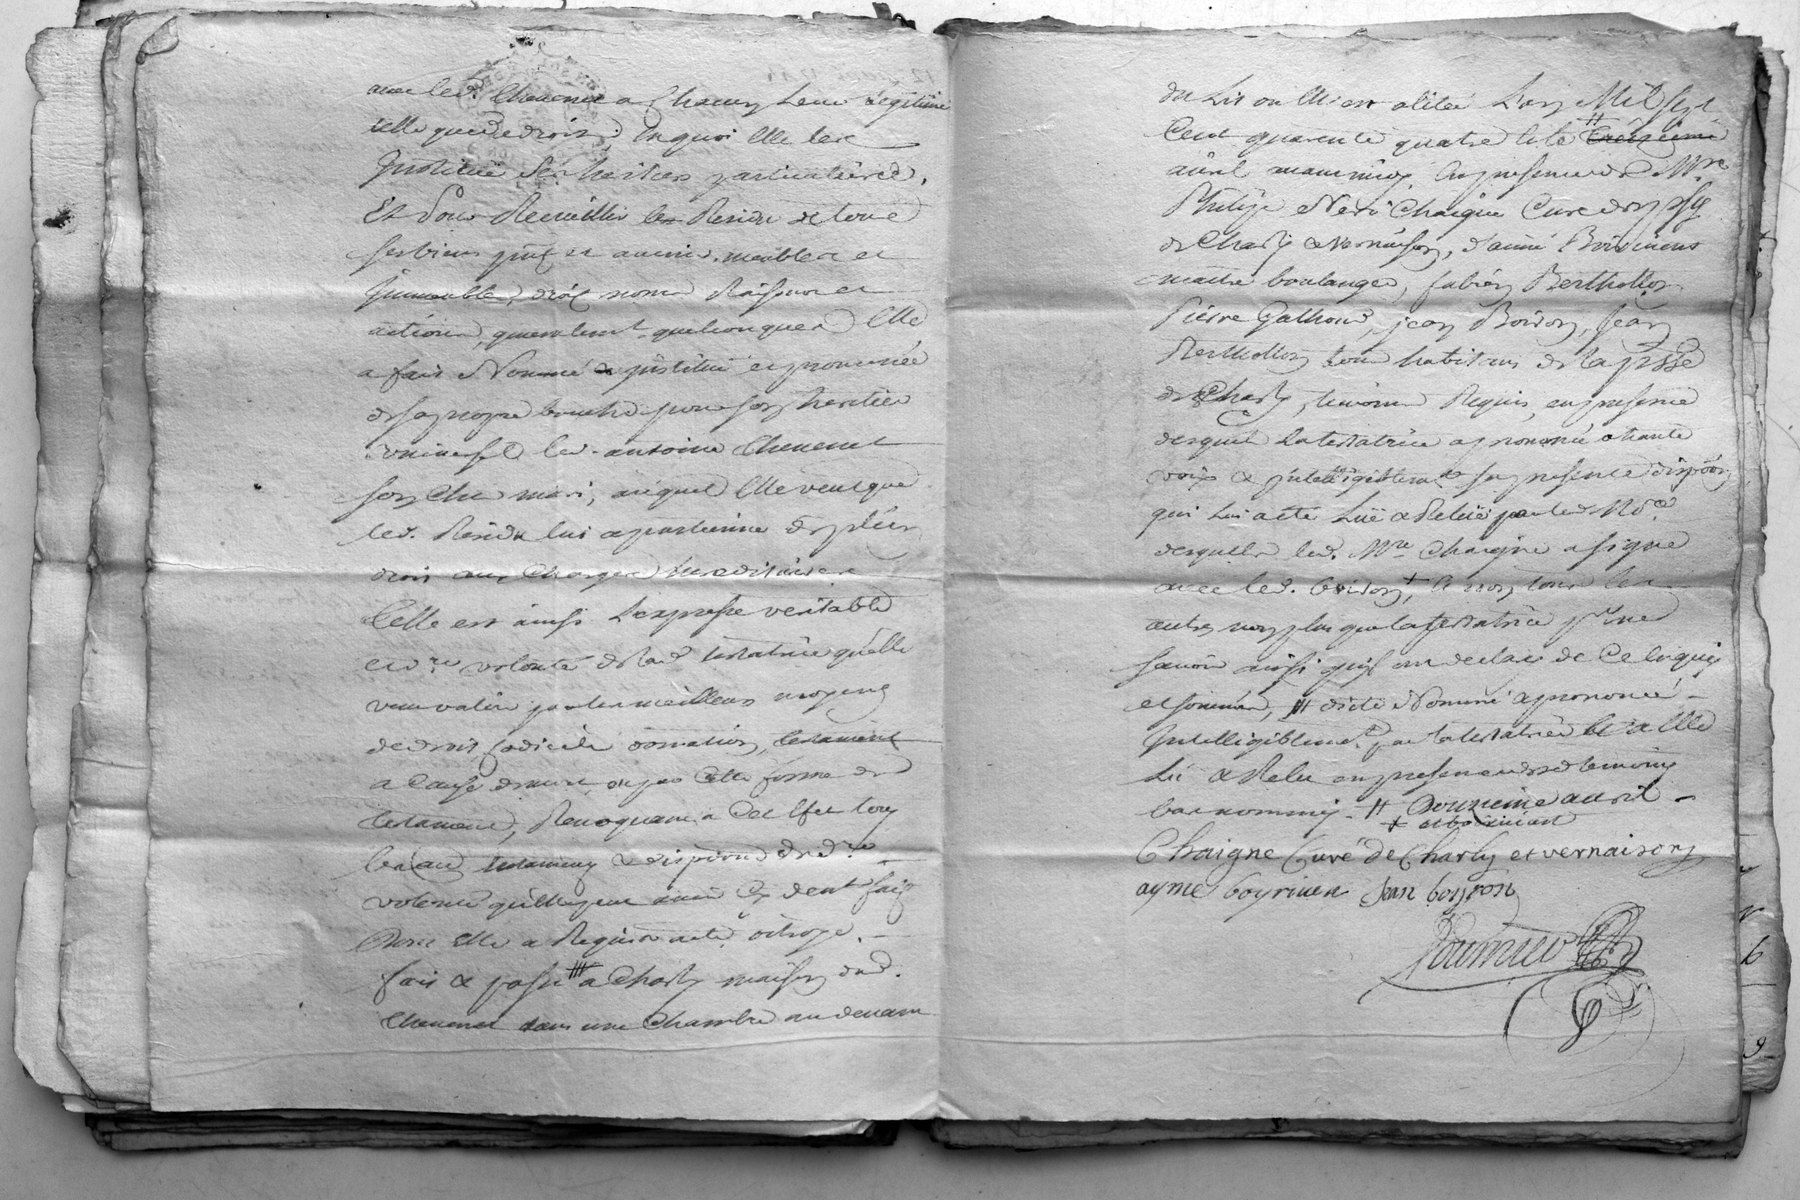 avec led. Chevenet a Chacun Leur legitime
telle que de droit, En quoi Elle les
Jnstitue Ses heritiers particulieres,
Et Pour Recueillir le Residu de tous
ses biens pnt et avenir, meubles et
Jmmeubles, droits noms Raisons et
actions, generalement quelconques Elle
a fait Nommé & jnstitué et prononcée
de sa propre bouche pour son heritier
universel led. antoine Chevenet
son cher mari, auquel Elle veut que
led. Residu lui apartienne de plein
droit aux Charges hereditaires
Celle est ainsi L'expresse veritable
et dre volonté de lad testatrice qu'elle
veut valoir par les meilleurs moyens
de droit, codicile donnation, testament
a Cause de mort, ou par Cette forme de
testament, Revoquant a Cet Effet tous
testamens & dispions de dre
volonté qu'elle peut avoir Cy devt fait
Dont Elle a Requis acte, octroyé.
fait & passé a Charly maison dud.
Chevenet dans une Chambre au devant
du Lit ou Elle est alitée L'an Mil Sept
Cent quarente quatre & le Treizieme
avril avant midy, En presence de Mre
Philipe Neri Chaigne Curé des psses
de Charly & Vernaison, d'aimé Boirivens
maitre boulanger, fabien Bertholon
Pierre Galhond, jean Boiron, jean
Bertholon tous habitans de la psse
de Charly, temoins Requis, en presence
desquels la testatrice a prononcé a haute
voix & jntelligiblemt sa presente dispion
qui Lui a eté Luë & Reluë par led. Nore
desquels led. Mre Chaigne a signé
avec led. boiron, + & non tous les
autres non plus que la testatrice pr ne
savoir ainsi qu'ils ont declaré de Ce Enquis
et sommés, dicté Nommé & prononcé
Jntelligiblemt par la testatrice & a Elle
Lû & Relu en presence desd temoins
bas nommés # Douzieme avril
+ et boirivent
Chaigne Curé de Charly et vernaison
ayme boyriven Jean boyron
Fournier